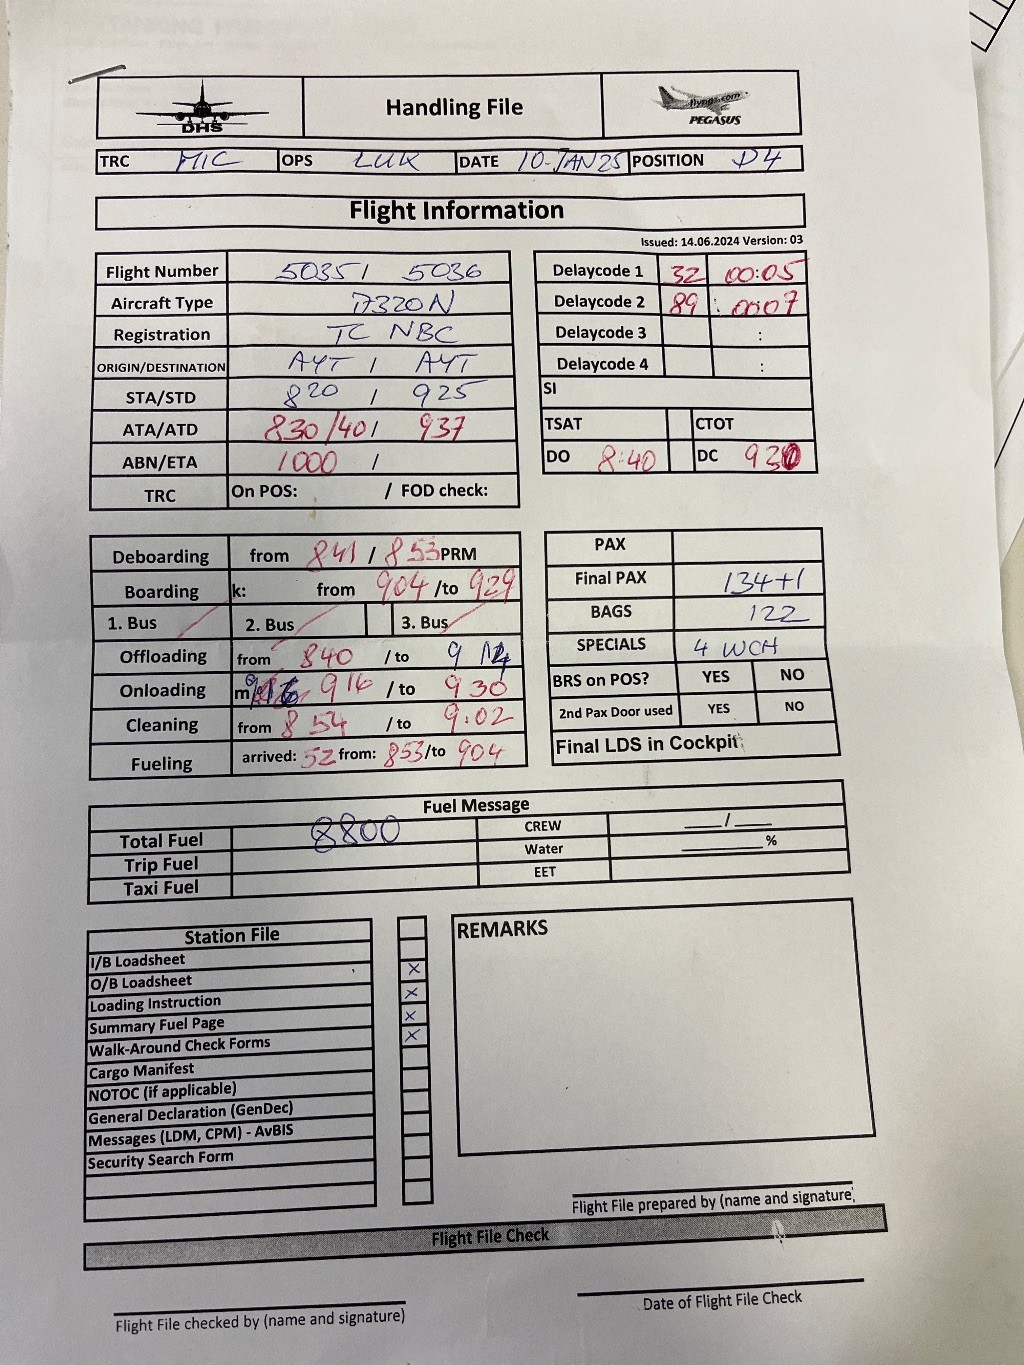 DHS
Handling File
flypgs.com
PEGASUS
TRC MIC OPS LUK DATE 10-JAN25 POSITION D4
Flight Information
Issued: 14.06.2024 Version: 03
Flight Number 5035 / 5036
Aircraft Type A320N
Registration TC NBC
ORIGIN/DESTINATION AYT / AYT
STA/STD 820 / 925
ATA/ATD 830/40 / 937
ABN/ETA 1000 /
TRC On POS: / FOD check:
Delaycode 1 32 00:05
Delaycode 2 89 : 0007
Delaycode 3 :
Delaycode 4 :
SI
TSAT CTOT
DO 8:40 DC 930
Deboarding from 841 / 853 PRM
Boarding k: from 904 /to 929
1. Bus 2. Bus 3. Bus
Offloading from 840 / to 9 14
Onloading m 916 / to 930
Cleaning from 854 / to 9.02
Fueling arrived: 52 from: 853 /to 904
PAX
Final PAX 134+1
BAGS 122
SPECIALS 4 WCH
BRS on POS? YES NO
2nd Pax Door used YES NO
Final LDS in Cockpit
Fuel Message
Total Fuel 8800 CREW ___/___
Trip Fuel Water ______%
Taxi Fuel EET
Station File
I/B Loadsheet
O/B Loadsheet x
Loading Instruction x
Summary Fuel Page x
Walk-Around Check Forms x
Cargo Manifest
NOTOC (if applicable)
General Declaration (GenDec)
Messages (LDM, CPM) - AvBIS
Security Search Form
REMARKS
Flight File prepared by (name and signature)
Flight File Check
Flight File checked by (name and signature)
Date of Flight File Check